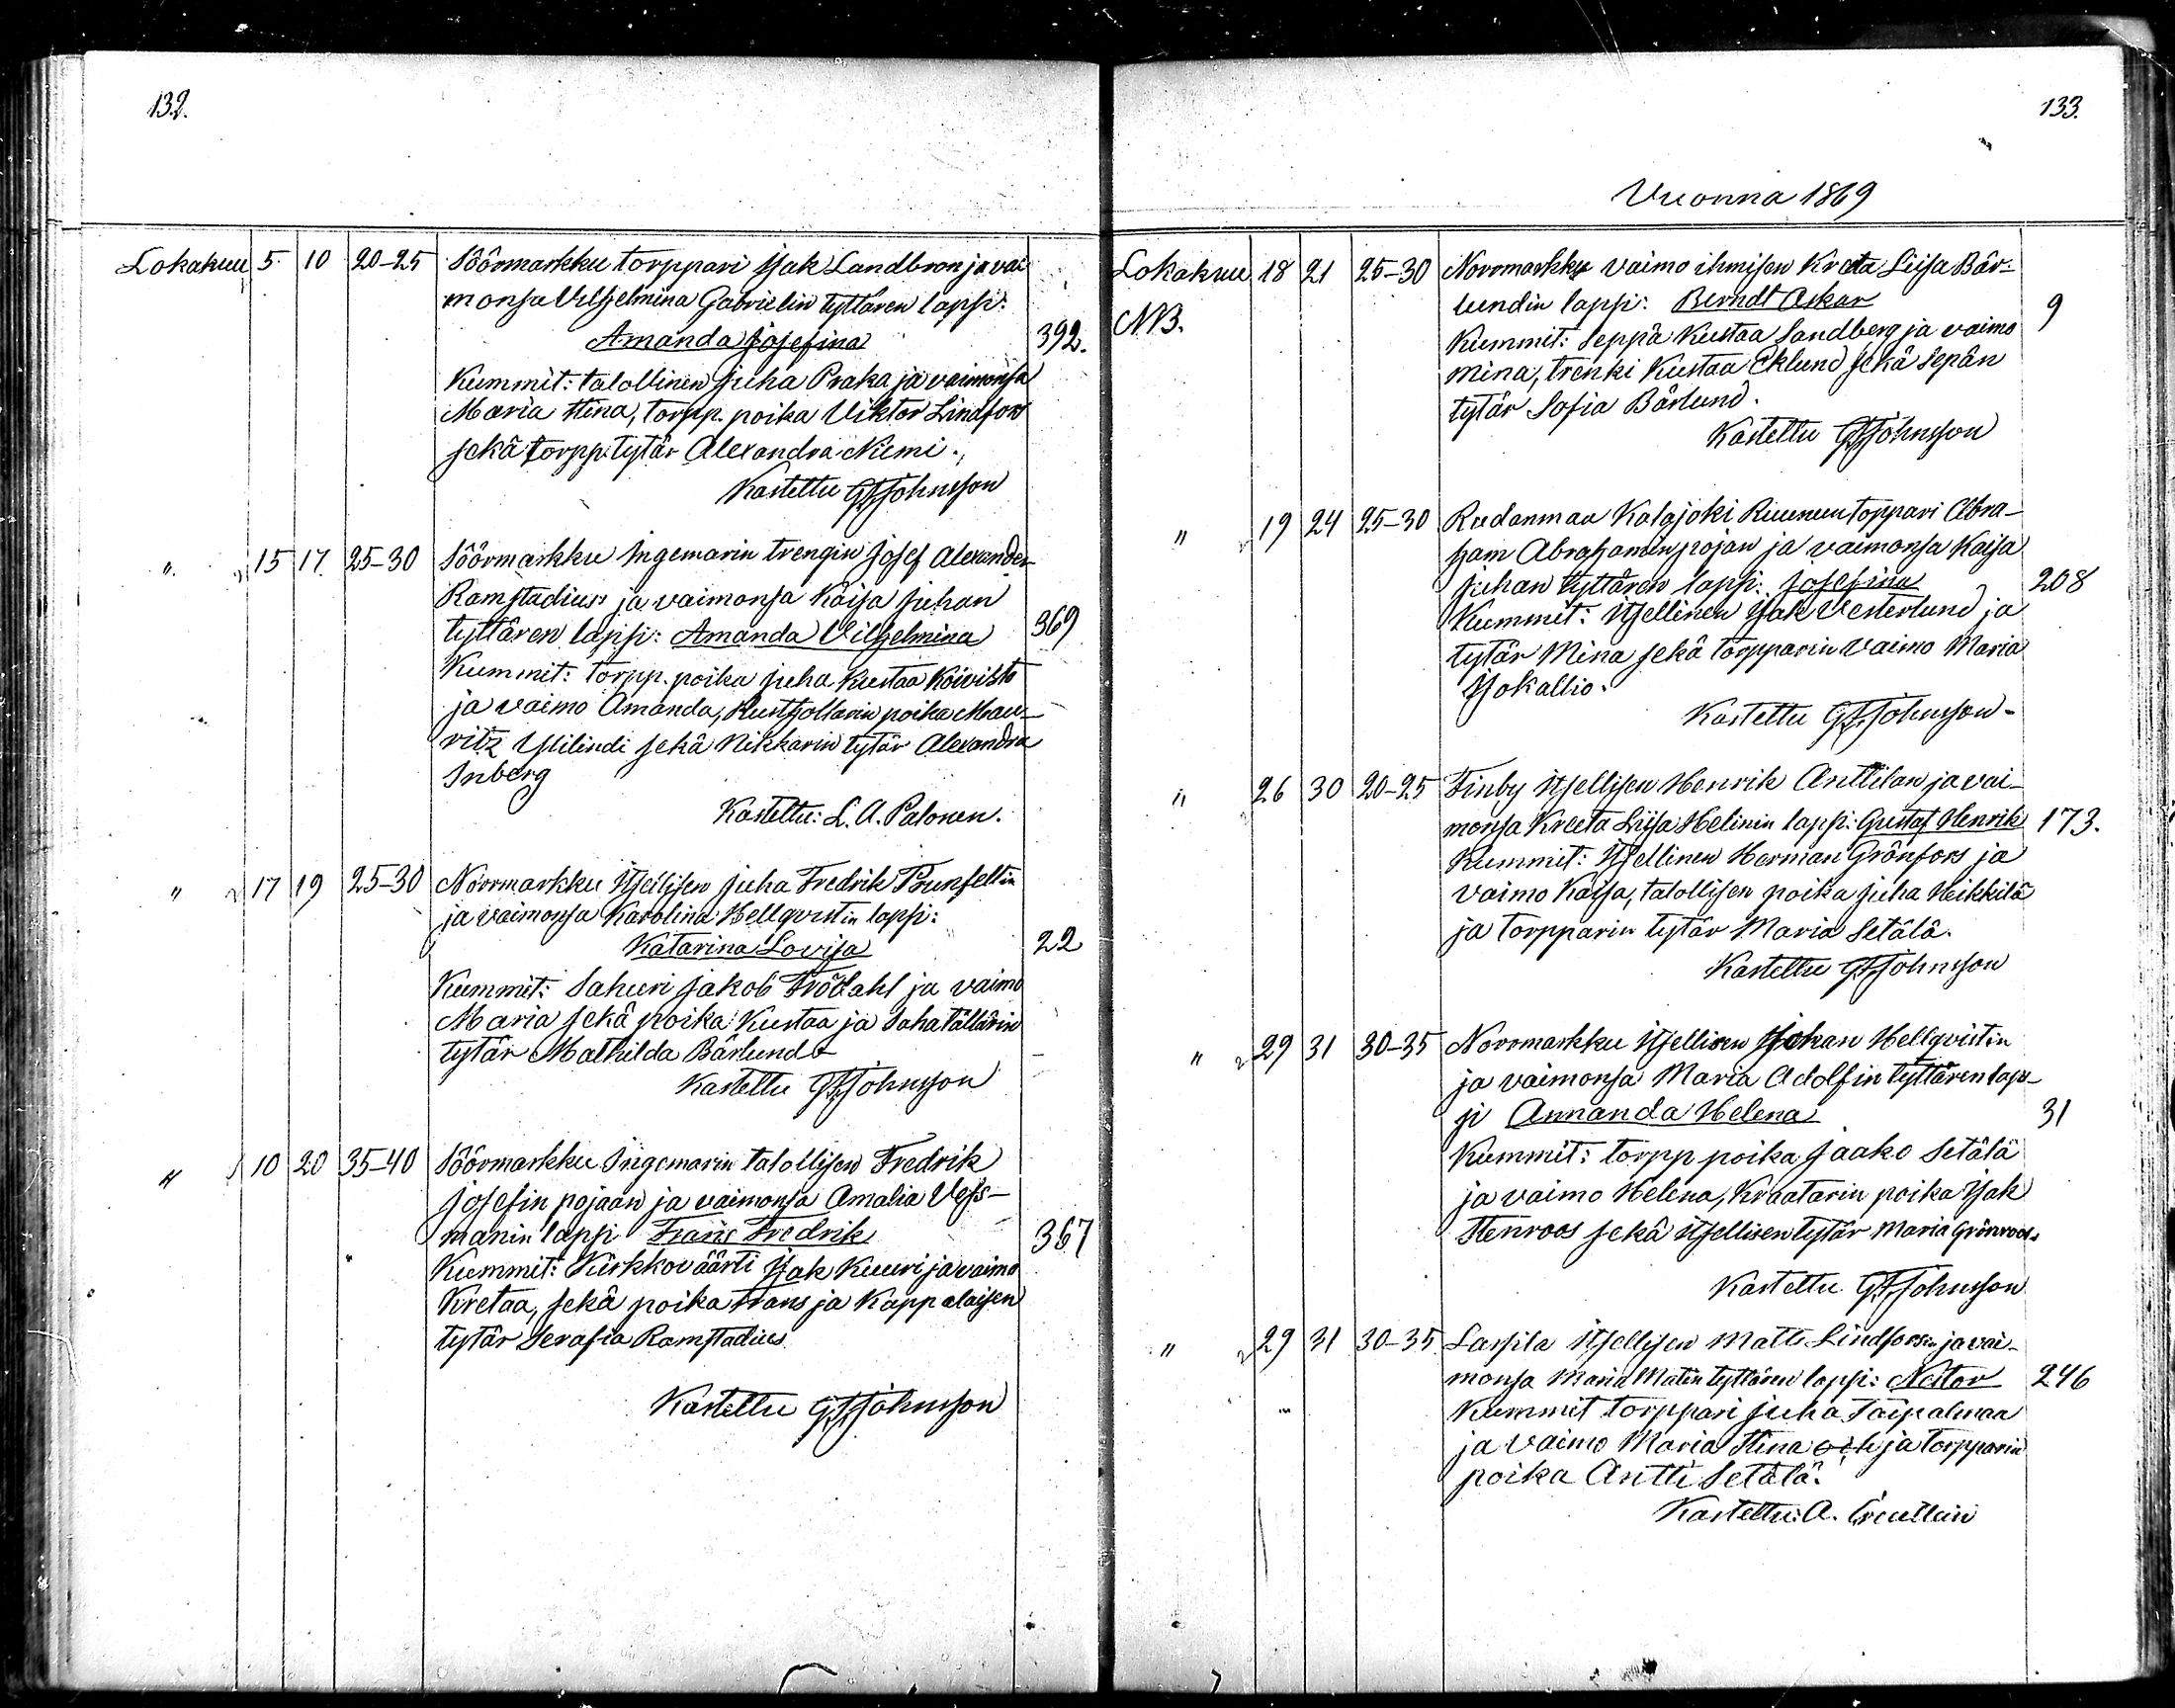 132.
Lokakuu 5 10 20-25 Söörmarkku torppari Isak Landbron ja vai
monsa Vilhelmina Gabrielin tyttären lapsi:
Amanda Josefina 392.
Kummit: talollinen Juha Praka ja vaimonsa
Maria Stina, torpp. poika Viktor Lindfors
sekä torpp. tytär Alexandra Niemi.
Kastettu GFJohnsson
" 15 17 25-30 Söörmarkku Ingemarin trengin Josef Alexander
Ramstadius ja vaimonsa Kaisa Juhan
tyttären lapsi: Amanda Vilhelmina 369
Kummit: torpp. poika Juha Kustaa Koivisto
ja vaimo Amanda, poika Mau-
ritz Ylilindi sekä Nikkarin tytär Alexandra
Inberg
Kastettu: L. A. Palonen.
" 17 19 25-30 Norrmarkku Itsellisen Juha Fredrik Brunfeltin
ja vaimonsa Karolina Hellqvistin lapsi:
Katarina Lovisa 22
Kummit: Sahuri Jakob Frödahl ja vaimo
Maria sekä poika Kustaa ja Sahatällärin
tytär Mathilda Bärlund
Kastettu GFJohnsson
" 10 20 35-40 Söörmarkku Ingemarin talollisen Fredrik
Josefin pojaan ja vaimonsa Amalia Vess-
manin lapsi Frans Fredrik 367
Kummit: Kirkkoväärti Isak Kuuri ja vaimo
Kretaa, sekä poika Frans ja Kappalaisen
tytär Serafia Ramstadius
Kastettu GFJohnsson
133.
Vuonna 1869
Lokakuu 18 21 25-30 Norrmarkku vaimo ihmisen Kreta Liisa Bär-
NB. lundin lapsi: Berndt Oskar 9
Kummit: Seppä Kustaa Sandberg ja vaimo
Mina, trenki Kustaa Eklund sekä Sepän
tytär Sofia Bärlund.
Kastettu GFJohnsson
" 19 24 25-30 Rudanmaa Kalajoki Ruunun toppari Abra-
ham Abrahamin pojan ja vaimonsa Kaisa
Juhan tyttären lapsi: Josefina 208
Kummit: Itsellinen Isak Vesterlund ja
tytär Mina sekä torpparin vaimo Maria
Isokallio.
Kastettu GFJohnsson-
" 26 30 20-25 Finby Itsellisen Henrik Anttilan ja vai-
monsa Kreeta Liisa Helinin lapsi: Gustaf Henrik 173.
Kummit: Itsellinen Herman Grönfors ja
vaimo Kaisa, talollisen poika Juha Heikkilä
ja torpparin tytär Maria Setälä.
Kastettu GFJohnsson
" 29 31 30-35 Norrmarkku Itsellisen Johan Hellqvistin
ja vaimonsa Maria Adolfin tyttären lap-
si Amanda Helena 31
Kummit: torpp poika Jaako Setälä
ja vaimo Helena, Kraatarin poika Isak
Stenroos sekä Itsellisen tytär Maria Grönroos.
Kastettu GFJohnsson
" 29 31 30-35 Lassila Itsellisen Matts Lindforsin ja vai-
monsa Maria Matin tyttären lapsi: Nestor 246
Kummit torppari Juha Taipalmaa
ja vaimo Maria Stina och ja torpparin
poika Antti Setälä.
Kastettu: A.